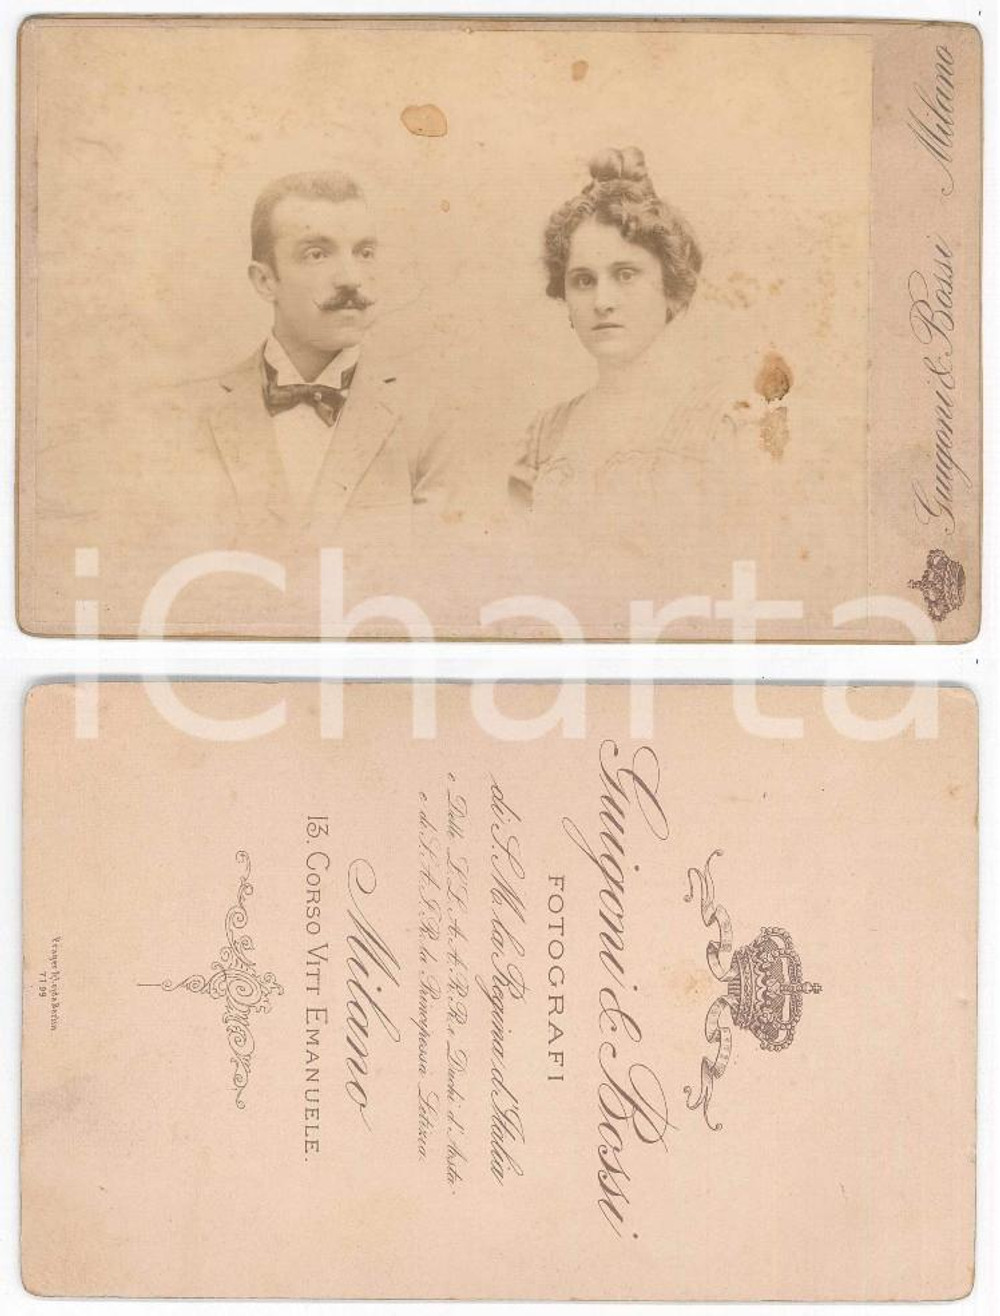 Guigoni & Bossi Milano
iCharta
Guigoni & Bossi
FOTOGRAFI
di S. M. la Regina d'Italia
e Delle L.L. A.A. R.R. i Duchi d'Aosta
e di S. A. I. R. la Principessa Letizia.
Milano
13. CORSO VITT EMANUELE.
7199